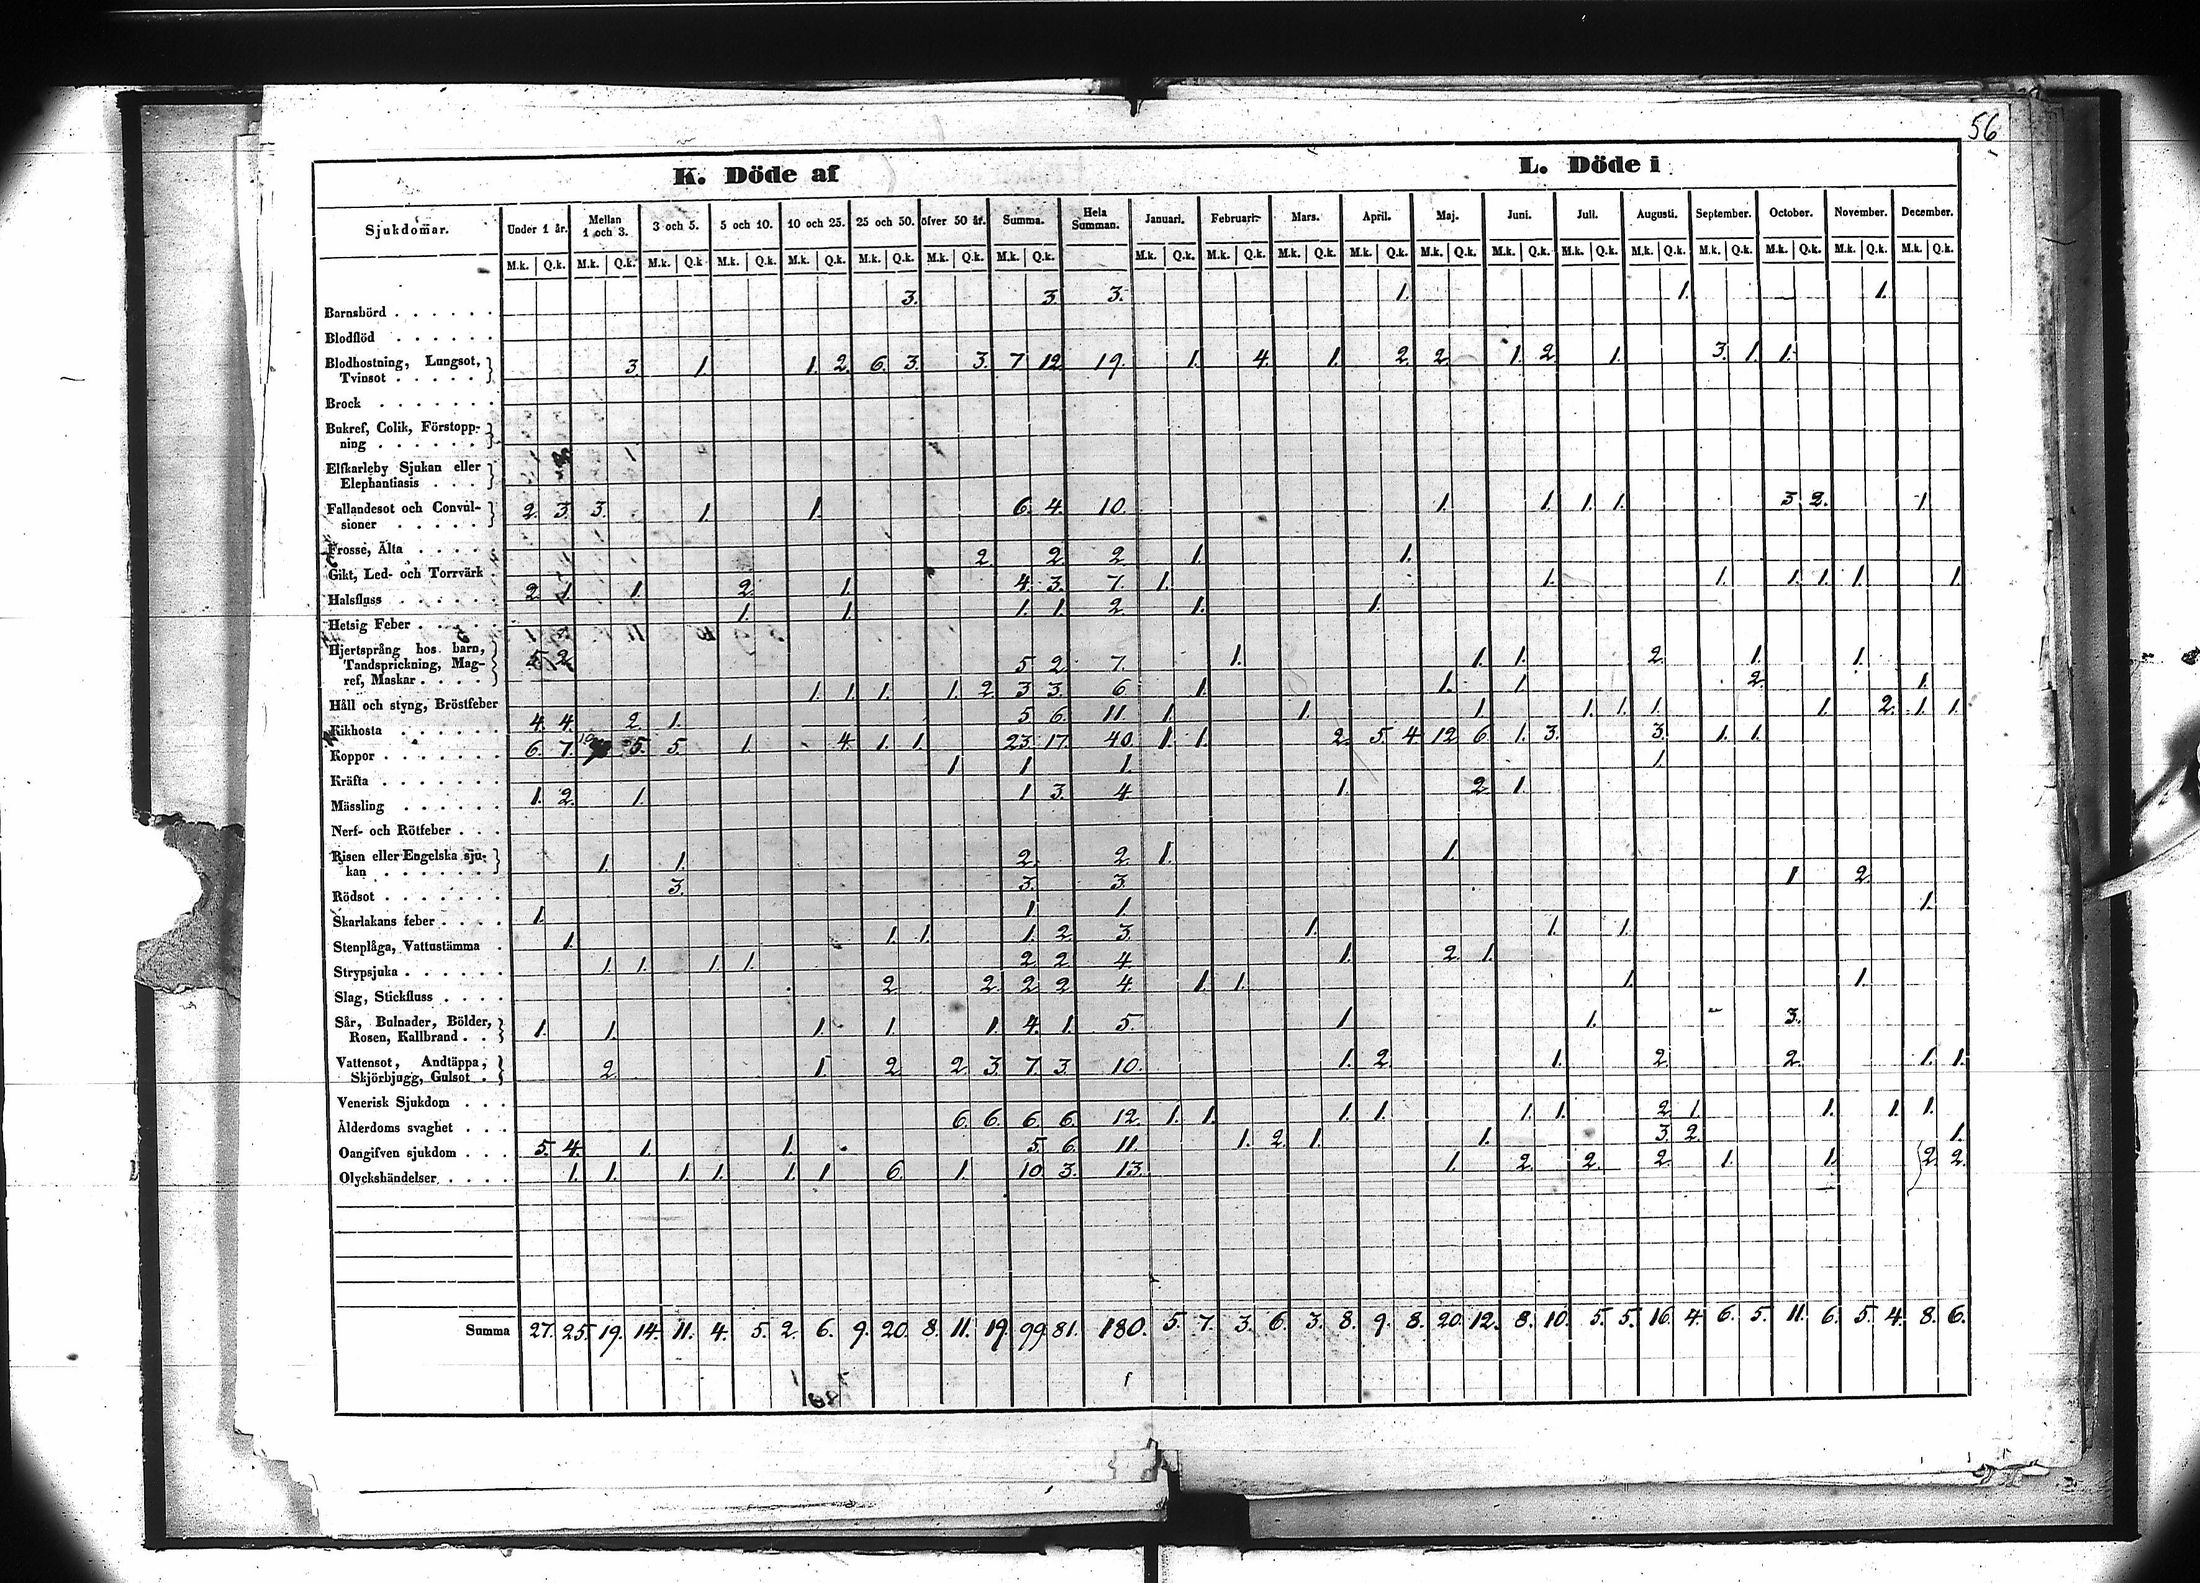 56
K. Döde af L. Döde i
Sjukdomar. Under 1 år. Mellan 1 och 3. 3 och 5. 5 och 10. 10 och 25. 25 och 50. öfver 50 år. Summa. Hela Summan. Januari. Februari. Mars. April. Maj. Juni. Juli. Augusti. September. October. November. December.
M.k. Q.k. M.k. Q.k. M.k. Q.k. M.k. Q.k. M.k. Q.k. M.k. Q.k. M.k. Q.k. M.k. Q.k. M.k. Q.k. M.k. Q.k. M.k. Q.k. M.k. Q.k. M.k. Q.k. M.k. Q.k. M.k. Q.k. M.k. Q.k. M.k. Q.k. M.k. Q.k. M.k. Q.k. M.k. Q.k.
Barnsbörd . . . . . . 3. 3. 3. 1. 1. 1.
Blodflöd . . . . . .
Blodhostning, Lungsot,
Tvinsot . . . . . 3. 1. 1. 2. 6. 3. 3. 7 12. 19. 1. 4. 1. 2. 2. 1. 2. 1. 3. 1. 1.
Brock . . . . . . .
Bukref, Colik, Förstopp-
ning . . . . . .
Elfkarleby Sjukan eller
Elephantiasis . . .
Fallandesot och Convul-
sioner . . . . . 2. 3. 3. 1. 1. 6. 4. 10. 1. 1. 1. 1. 3. 2. 1.
Frosse, Älta . . . .
Gikt, Led- och Torrvärk . 2. 2. 2. 1. 1.
Halsfluss . . . . . . 2. 1. 1. 2. 1. 4. 3. 7. 1. 1. 1. 1. 1. 1. 1.
Hetsig Feber . . . . . 1. 1. 1. 1. 2. 1. 1.
Hjertsprång hos barn,
Tandsprickning, Mag-
ref, Maskar . . . . 5. 2. 5. 2. 7. 1. 1. 1. 2. 1. 1.
Håll och styng, Bröstfeber 1. 1. 1. 1. 2. 3. 3. 6. 1. 1. 1. 2. 1.
Kikhosta . . . . . . 4. 4. 2. 1. 5. 6. 11. 1. 1. 1. 1. 1. 1. 1. 2. 1. 1.
Koppor . . . . . . . 6. 7. 10 5. 5. 1. 4. 1. 1. 23. 17. 40. 1. 1. 2. 5. 4. 12. 6. 1. 3. 3. 1. 1.
Kräfta . . . . . . . 1 1. 1. 1.
Mässling . . . . . . 1. 2. 1. 1 3. 4. 1. 2. 1.
Nerf- och Rötfeber . . .
Risen eller Engelska sju-
kan . . . . . . . 1. 1. 2. 2. 1. 1.
Rödsot . . . . . . . 3. 3. 3. 1 2.
Skarlakans feber . . . . 1. 1. 1. 1.
Stenplåga, Vattustämma . 1. 1. 1. 1. 2. 3. 1. 1. 1.
Strypsjuka . . . . . . 1. 1. 1. 1. 2. 2. 4. 1. 2. 1.
Slag, Stickfluss . . . . 2. 2. 2. 2. 4. 1. 1. 1. 1.
Sår, Bulnader, Bölder,
Rosen, Kallbrand . . 1. 1. 1. 1. 1. 4. 1. 5. 1. 1. 3.
Vattensot, Andtäppa,
Skjörbjugg, Gulsot . 2. 1. 2. 2. 3. 7. 3. 10. 1. 2. 1. 2. 2. 1. 1.
Venerisk Sjukdom . . .
Ålderdoms svaghet . . . 6. 6. 6. 6. 12. 1. 1. 1. 1. 1. 1. 2. 1. 1. 1. 1.
Oangifven sjukdom . . . 5. 4. 1. 1. 5. 6. 11. 1. 2. 1. 1. 3. 2. 1.
Olyckshändelser . . . . 1. 1. 1. 1. 1. 1 6. 1. 10. 3. 13. 1. 2. 2. 2. 1. 1. 2. 2.
Summa 27. 25. 19. 14. 11. 4. 5. 2. 6. 9. 20. 8. 11. 19. 99. 81. 180. 5. 7. 3. 6. 3. 8. 9. 8. 20. 12. 8. 10. 5. 5. 16. 4. 6. 5. 11. 6. 5. 4. 8. 6.